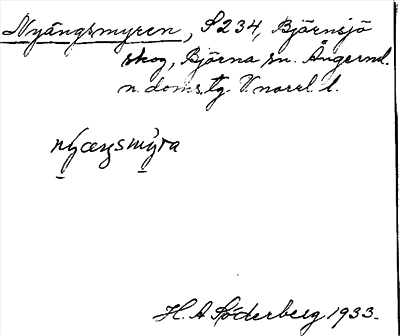 Nyängsmyren, S 234, Björnsjö
skog, Björna sn. Ångerml.
n. doms. tg. V. norrl. l.
nyæŋsmyra
H. A Söderberg 1933.